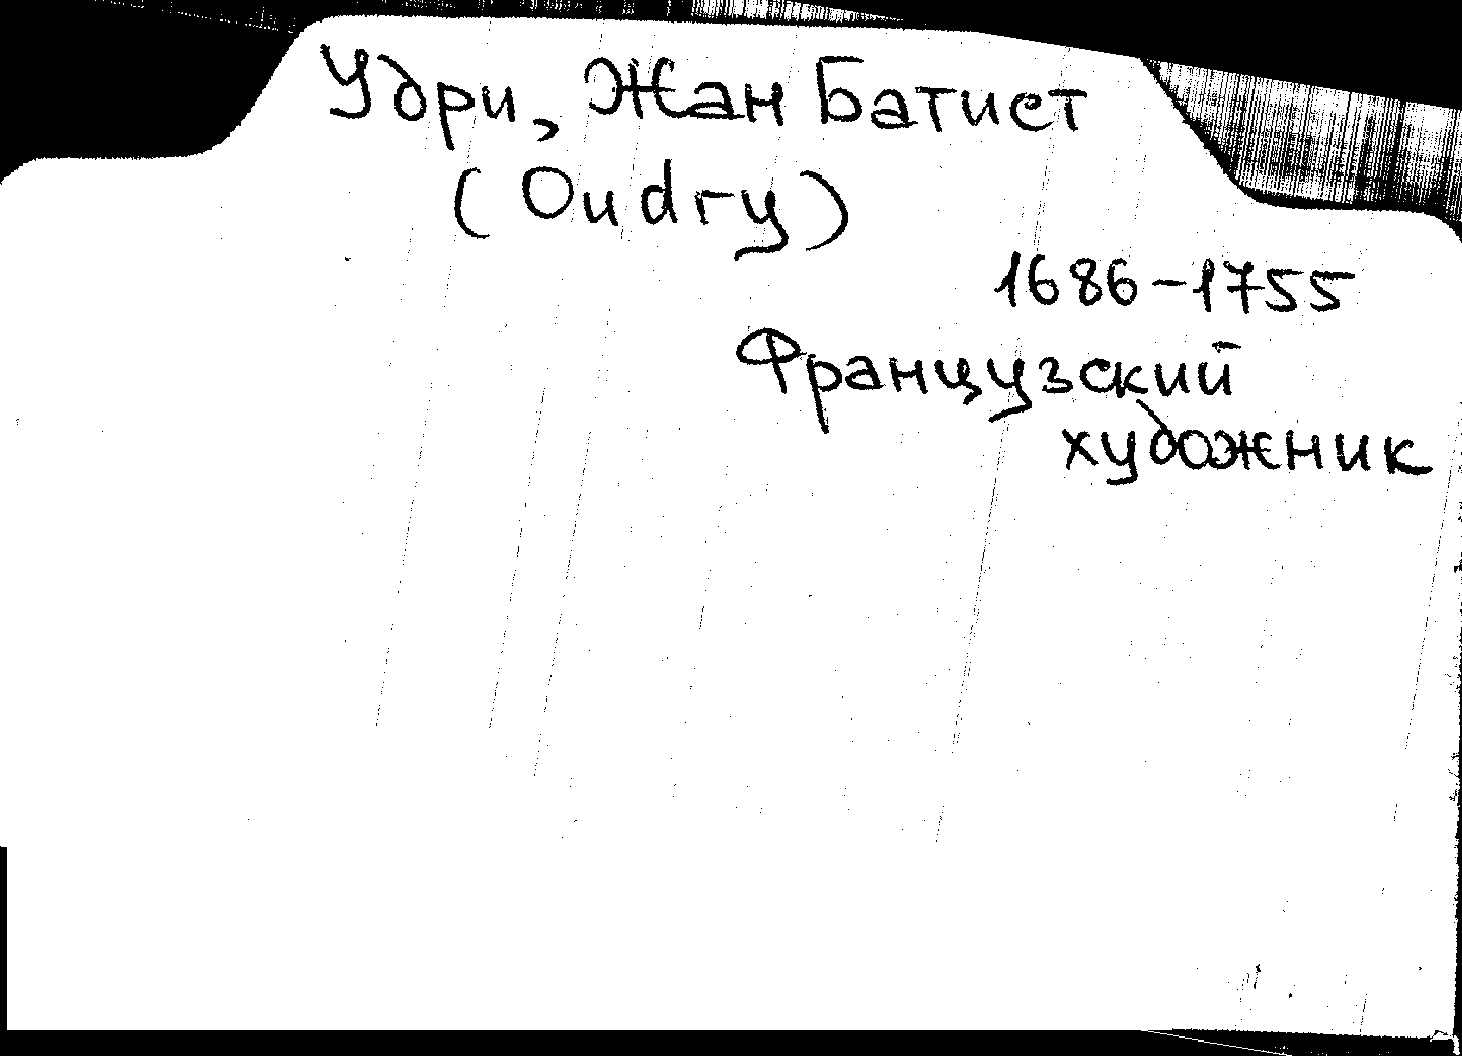 Удри, Жан Батист
(Oudry)
1686-1755
Французский
художник